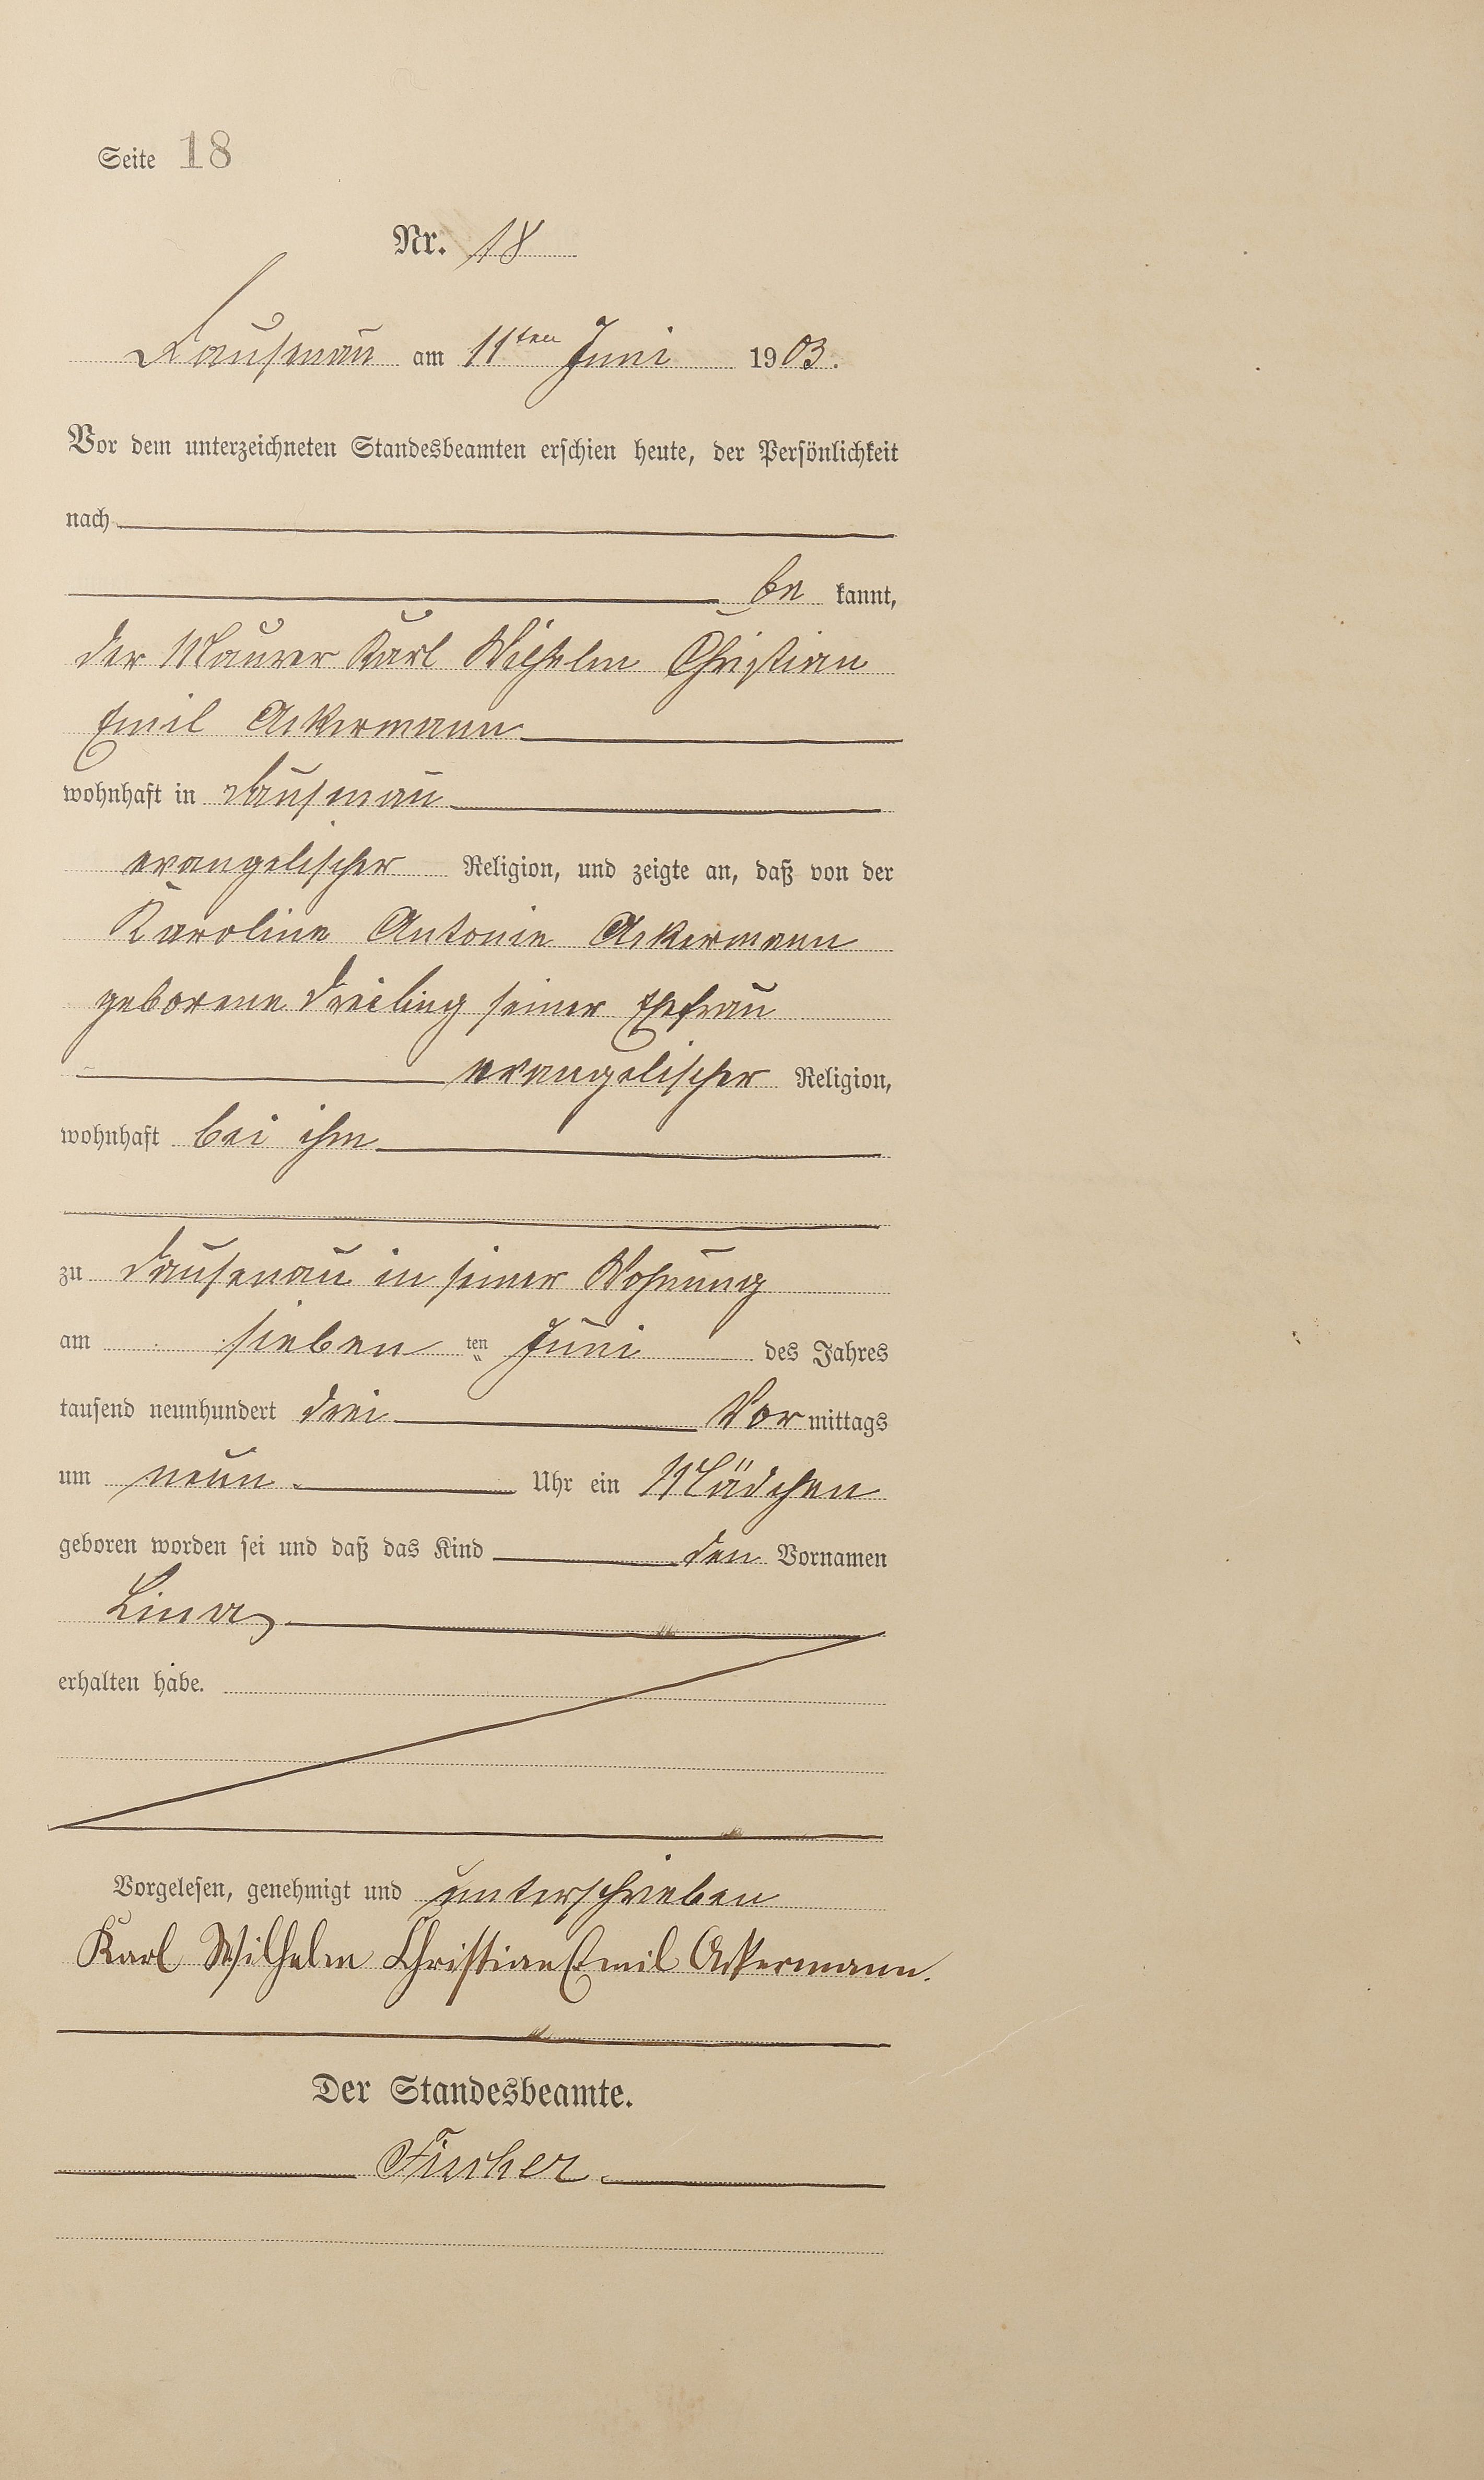 Seite 18
Nr. 18
Dausenau am 11ten Juni 1903.
Vor dem unterzeichneten Standesbeamten erschien heute, der Persönlichkeit
nach
be kannt,
der Maurer Karl Wilhelm Christian
Emil Ackermann
wohnhaft in Dausenau
evangelischer Religion, und zeigte an, daß von der
Karoline Antonie Ackermann
geborene Dreiling seiner Ehefrau
evangelischer Religion,
wohnhaft bei ihm
zu Dausenau in seiner Wohnung
am sieben ten Juni des Jahres
tausend neunhundert drei Vormittags
um neun Uhr ein Mädchen
geboren worden sei und daß das Kind den Vornamen
Lina
erhalten habe.
Vorgelesen, genehmigt und unterschrieben
Karl Wilhelm Christian Emil Ackermann.
Der Standesbeamte.
Fischer.